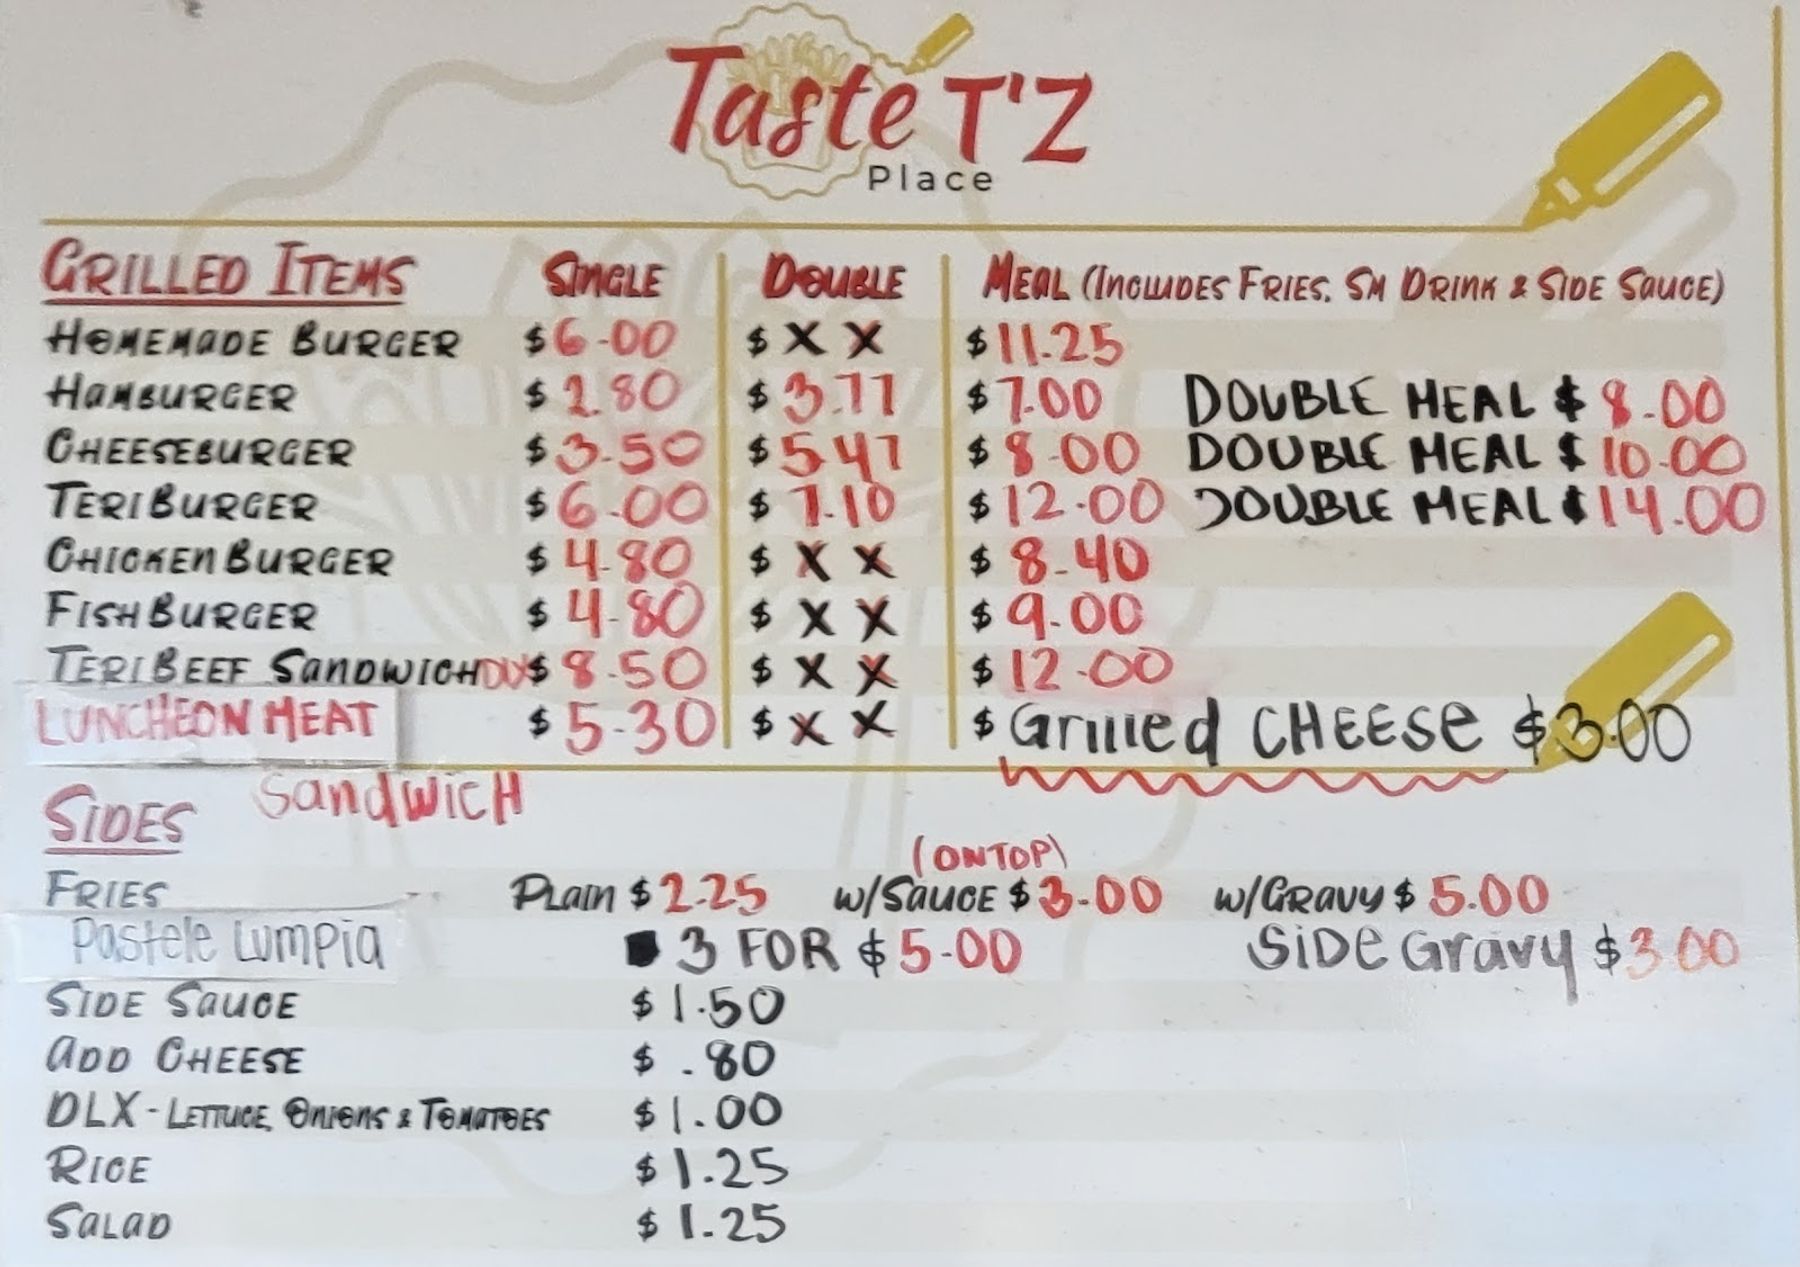 Taste T'Z
Place
GRILLED ITEMS SINGLE DOUBLE MEAL (INCLUDES FRIES, SM DRINK & SIDE SAUCE)
HOMEMADE BURGER $6.00 $ X X $11.25
HAMBURGER $2.80 $3.77 $7.00 DOUBLE MEAL $8.00
CHEESEBURGER $3.50 $5.47 $8.00 DOUBLE MEAL $10.00
TERI BURGER $6.00 $7.10 $12.00 DOUBLE MEAL $14.00
CHICKEN BURGER $4.80 $ X X $8.40
FISH BURGER $4.80 $ X X $9.00
TERI BEEF SANDWICH DLX $8.50 $ X X $12.00
LUNCHEON MEAT $5.30 $ X X $ Grilled CHEESE $3.00
SandwicH
SIDES
(ON TOP)
FRIES Plain $2.25 w/SAUCE $3.00 w/GRAVY $5.00
Pastele Lumpia 3 FOR $5.00 SiDe Gravy $3.00
SIDE SAUCE $1.50
ADD CHEESE $.80
DLX - LETTUCE, ONIONS & TOMATOES $1.00
RICE $1.25
SALAD $1.25